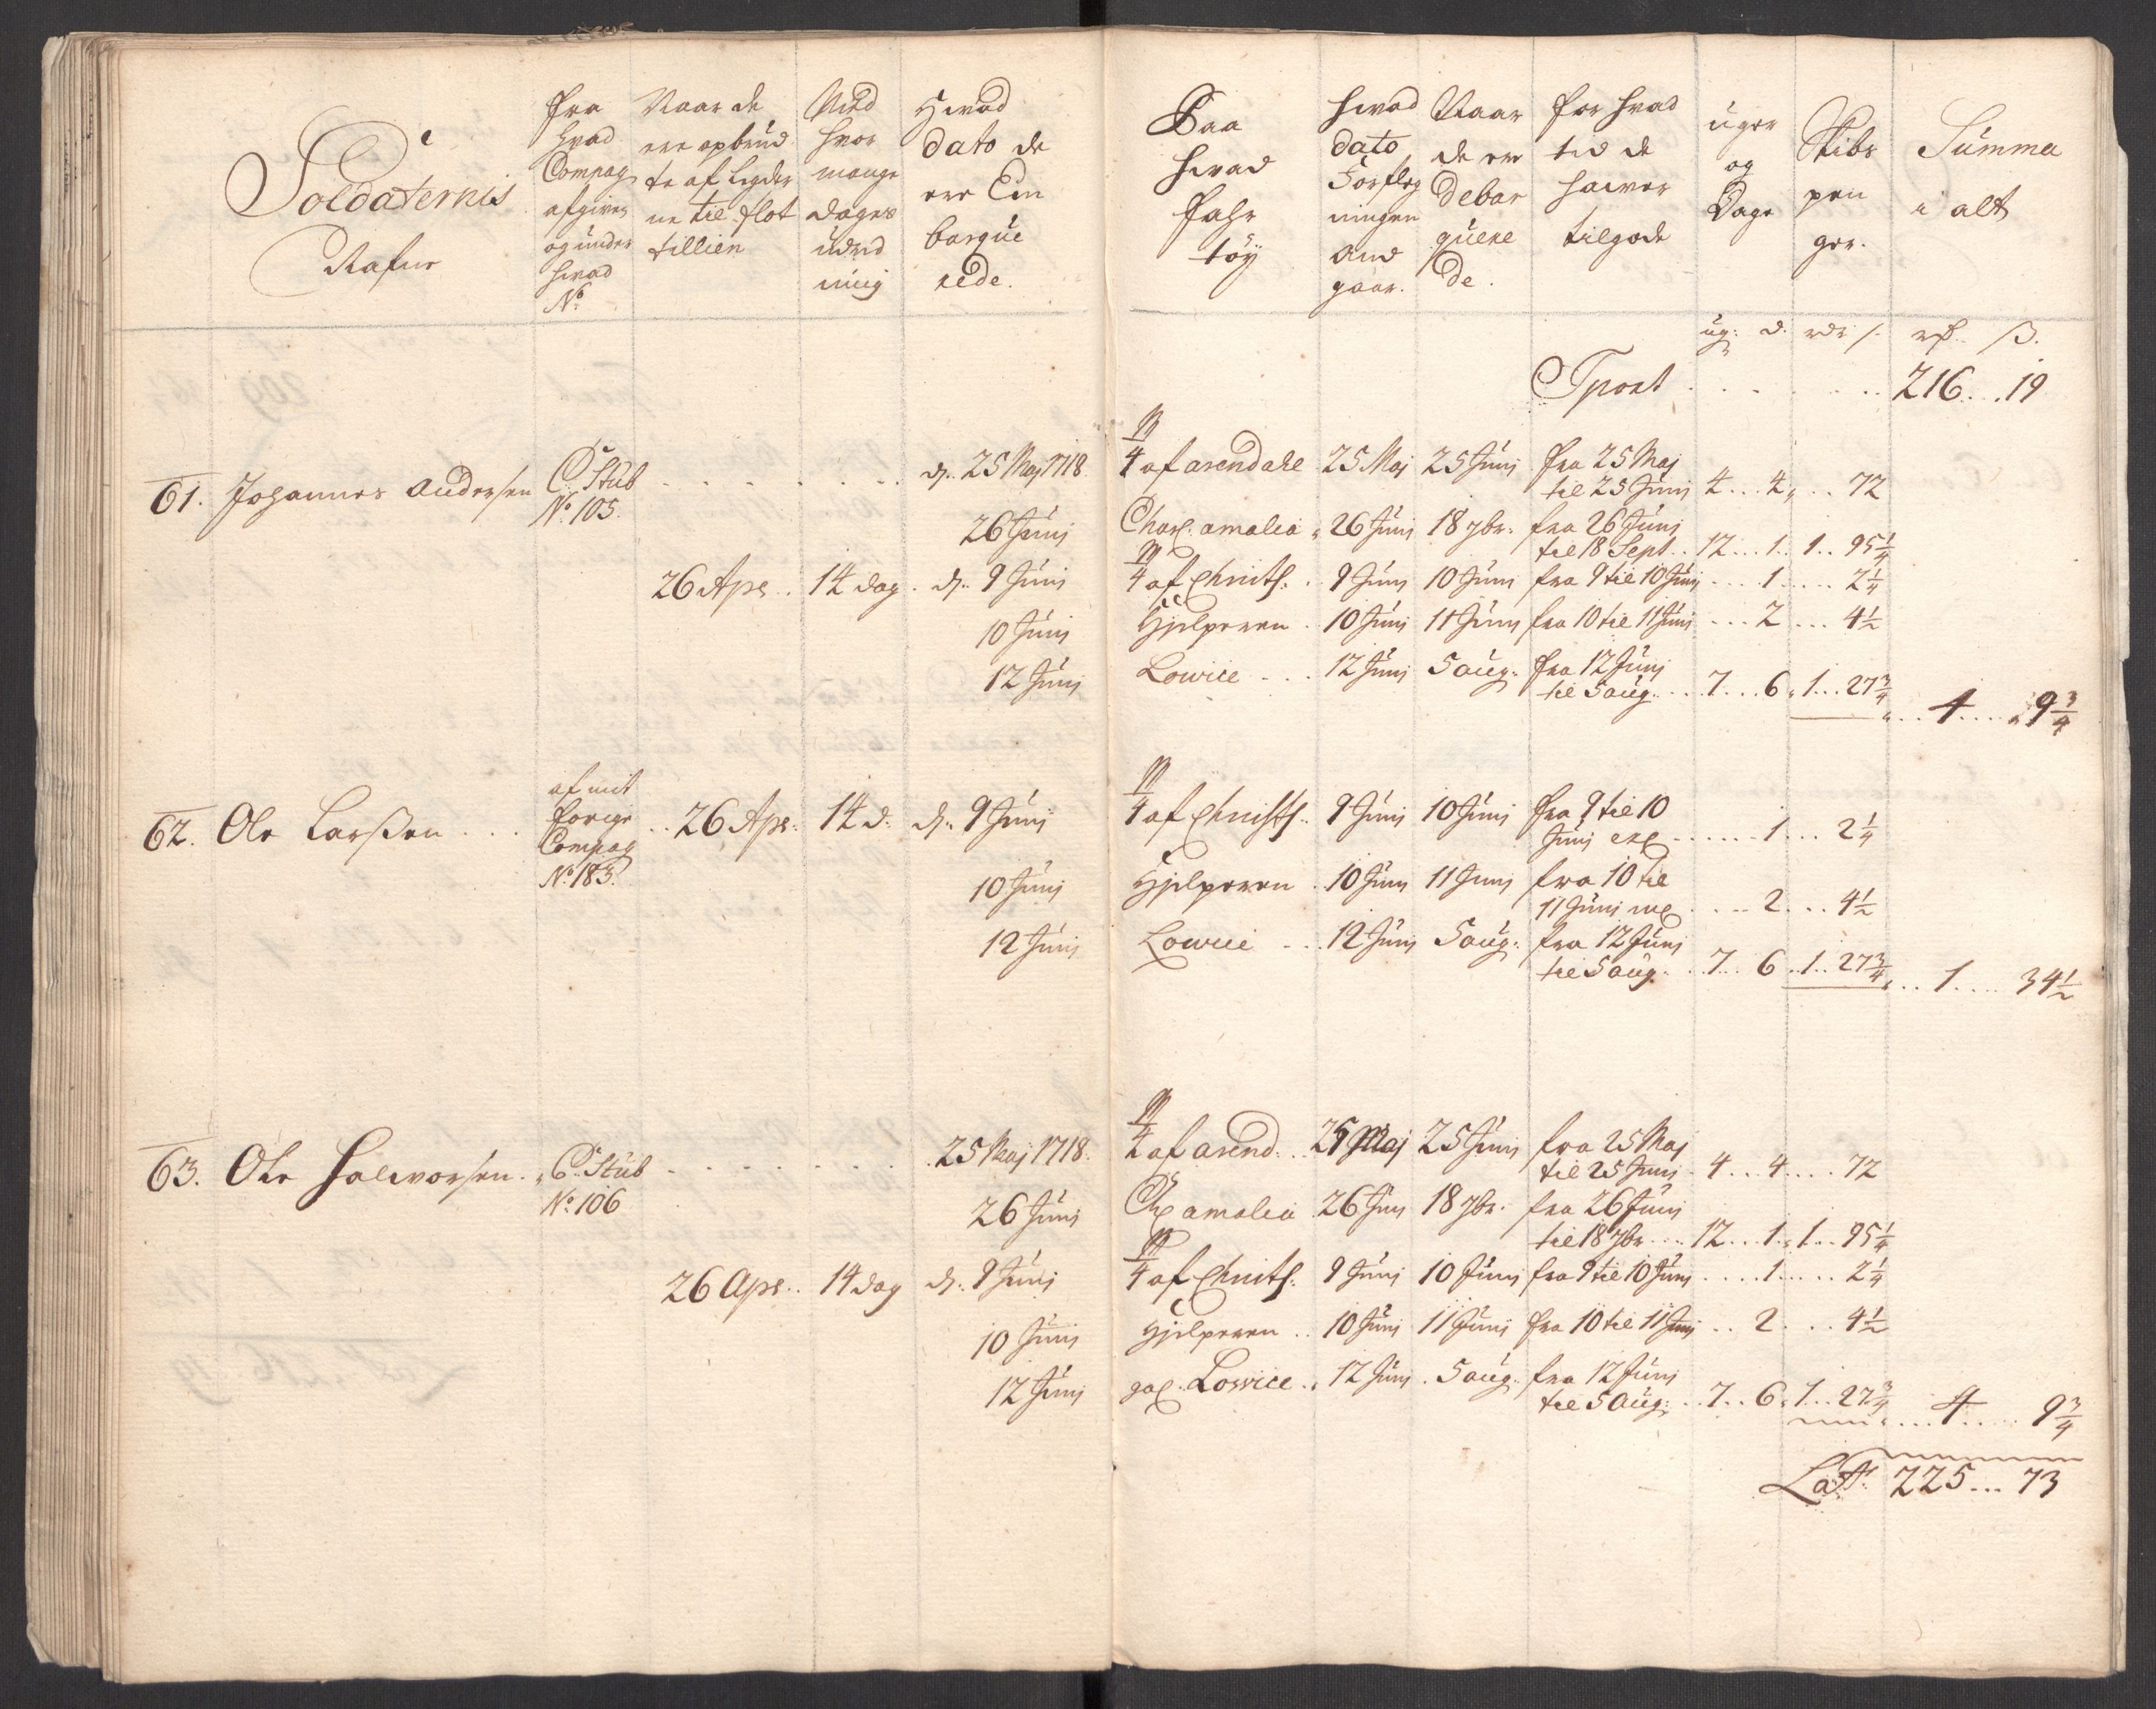 Soldaternis
Nafne
fra
hvad
Compag
afgiven
og under
hvad
No
Naar de
ere opbud
te af Legder
ne til flot
tillien
Med
hvor
mange
dages
udred
ning
Hvad
dato de
ere Em
barque
rede.
Paa
hvad
fahr
töy
hvad
dato
Forpleg
ningen
and
gaar.
Naar
de ere
debar
quere
de.
for hvad
tid de
hawer
tilgode
uger
og
Dage
Skibs
pen
ger.
Summa
i alt
ug: d. rdr s. rd. ß.
Tport . . . . . 216...19
61. Johannes Andersen C. Stub . . . . . . d. 25 Maj 1718. 4 af arendahl 25 Maj 25 Junj fra 25 Maj
No. 105. til 25 Junj 4...4,...72
26 Junj Charl. amalia 26 Junj 18 7br. fra 26 Junj
til 18 Sept. 12...1..1..95 1/4
26 Apr. 14 dag. d. 9 Junj 4 af Christ. 9 Junj 10 Junj fra 9 til 10 Junj ....1.... 2 1/4
10 Junj Hielperen. 10 Junj 11 Junj fra 10 til 11 Junj ...2...4 1/2
12 Junj Lowise ... 12 Junj 5 aug. fra 12 Junj
til 5 aug. ...7...6,1...27 3/4
...4....9 3/4
62. Ole Larssen ... af mit
forige
Compag
No. 183.
..26 Apr. 14 d. d. 9 Junj 4 af Christ. 9 Junj 10 Junj fra 9 til 10
Junj exl ......1...2 1/4
10 Junj Hielperen. 10 Junj 11 Junj fra 10 til
11 Junj inl ....2...4 1/2
12 Junj Lowise ... 12 Junj 5 aug. fra 12 Junj
til 5 aug. ..7...6..1..27 3/4 ...1....34 1/2
63. Ole Halvorsen. C. Stub . . . . . . . . 25 Maj 1718. 4 af arend. 25 Maj 25 Junj fra 25 Maj
No. 106 til 25 Junj. 4...4....72
26 Junj Ch. amalia 26 Junj 18 7br. fra 26 Junj
til 18 7br. ...12...1,1...95 1/4
26 Apr. 14 dag d. 9 Junj 4 af Christ. 9 Junj 10 Junj fra 9 til 10 Junj ....1.....2 1/4
10 Junj Hielperen .. 10 Junj 11 Junj fra 10 til 11 Junj ..2...4 1/2
12 Junj gal. Lowise. 12 Junj. 5 aug. fra 12 Junj
til 5 Aug. ..7..6,1..27 3/4 ....4.....9 3/4
Latr. 225...73